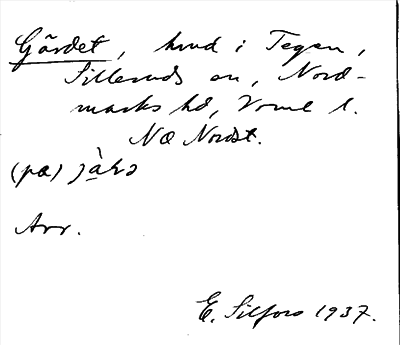 Gärdet, hmd i Tegen,
Silleruds sn, Nord-
marks hd, Värml l.
NO Nordst.
(på)
Arr.
E. Silfors 1937.